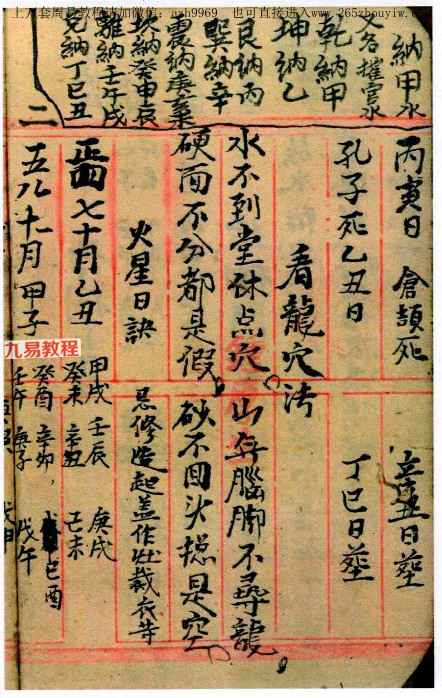 上万套周易教程请加微信:nzh9969 也可直接进入www.265zhouyiw.c
納甲水
又名摧官水
乾納甲
坤納乙
艮納丙
巽納辛
震納庚亥未
坎納癸申辰
離納壬寅戌
兑納丁巳丑
二
丙寅日 倉頡死 辛丑日塟
孔子死乙丑日 丁巳日塟
看龍穴法
水不到堂休点穴 山無腦脚不尋龍
硬面不分都是假 砂不回头揔是空
火星日訣 忌修造起蓋作灶裁衣等
七十月乙丑 甲戌 壬辰 庚戌
癸未 辛丑 己未
五八十月 甲子
癸酉 辛卯 己酉
壬午 庚子 戊午
九易教程